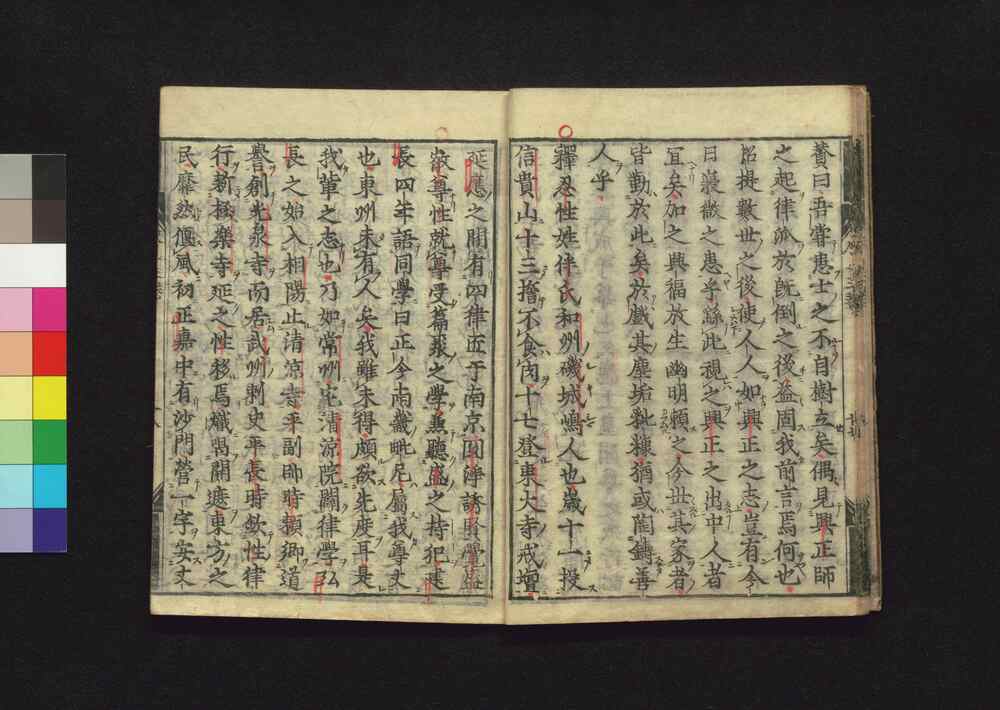 賛曰吾嘗患士之不自樹立矣偶見興正師
之起律於既倒之後益固我前言焉何也
招提數世之後使人人如興正之志豈有今
日衰微之患乎繇此視之興正之出中人者
宜矣加之興福放生幽明頼之今世其家者
皆勤於此矣於戲其塵垢粃糠猶或陶鑄善
人乎
釋忍性姓伴氏和州磯城嶋人也歳十一投
信貴山十三擔不食肉十七登東大寺戒壇
延應之間有四律匠于南京圓淨誘賢覺盛
叡尊性就尊受篇聚之學兼聽盛之持犯建
長四年語同學曰正今南畿毗尼屬我尊丈
也東州未有人矣我雖未得頗欲先度耳是
我輩之志也乃如常州光清涼院闢律學弘
長之始入相陽止清涼寺平副帥時頼卿道
譽創光泉寺而居武州刺史平長時欽性律
行新極樂寺延之性移焉熾闡關遮東方之
民靡然偃風初正嘉中有沙門營一宇安丈